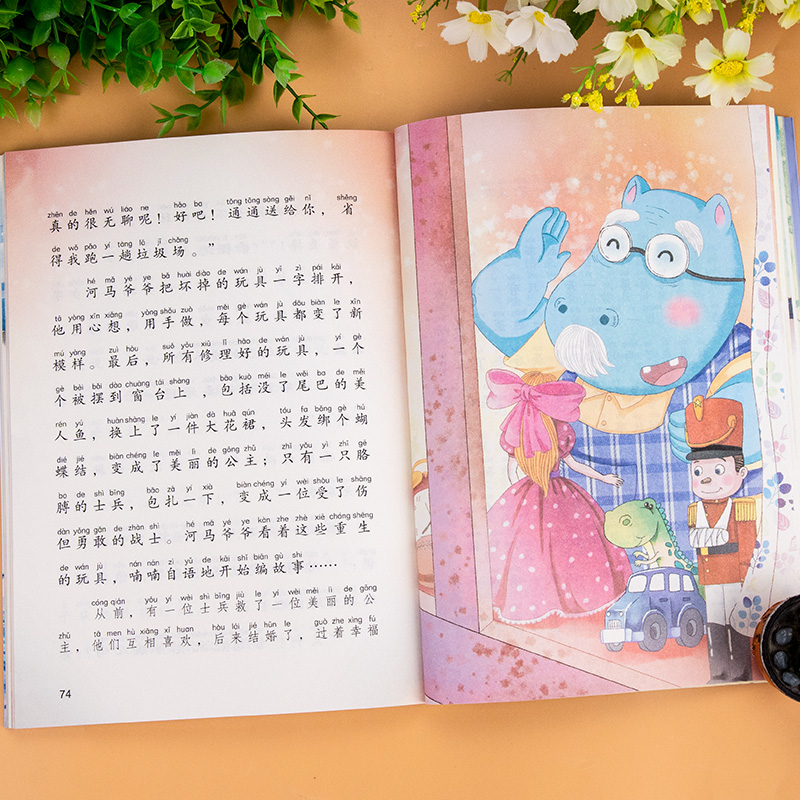 zhēn de hěn wú liáo ne hǎo ba tōng tōng sòng gěi nǐ shěng
真的很无聊呢！好吧！通通送给你，省
de wǒ pǎo yí tàng lā jī chǎng
得我跑一趟垃圾场。”
hé mǎ yé ye bǎ huài diào de wán jù yī zì pái kāi
河马爷爷把坏掉的玩具一字排开，
tā yòng xīn xiǎng yòng shǒu zuò měi gè wán jù dōu biàn le xīn
他用心想，用手做，每个玩具都变了新
mú yàng zuì hòu suǒ yǒu xiū lǐ hǎo de wán jù yí gè
模样。最后，所有修理好的玩具，一个
gè bèi bǎi dào chuāng tái shàng bāo kuò méi le wěi ba de měi
个被摆到窗台上，包括没了尾巴的美
rén yú huàn shàng le yí jiàn dà huā qún tóu fa bǎng gè hú
人鱼，换上了一件大花裙，头发绑个蝴
dié jié biàn chéng le měi lì de gōng zhǔ zhǐ yǒu yì zhī gē
蝶结，变成了美丽的公主；只有一只胳
bo de shì bīng bāo zā yí xià biàn chéng yí wèi shòu le shāng
膊的士兵，包扎一下，变成一位受了伤
dàn yǒng gǎn de zhàn shì hé mǎ yé ye kàn zhe zhè xiē chóng shēng
但勇敢的战士。河马爷爷看着这些重生
de wán jù nán nán zì yǔ de kāi shǐ biān gù shi
的玩具，喃喃自语地开始编故事……
cóng qián yǒu yí wèi shì bīng jiù le yí wèi měi lì de gōng
从前，有一位士兵救了一位美丽的公
zhǔ tā men hù xiāng xǐ huan hòu lái jié hūn le guò zhe xìng fú
主，他们互相喜欢，后来结婚了，过着幸福
74